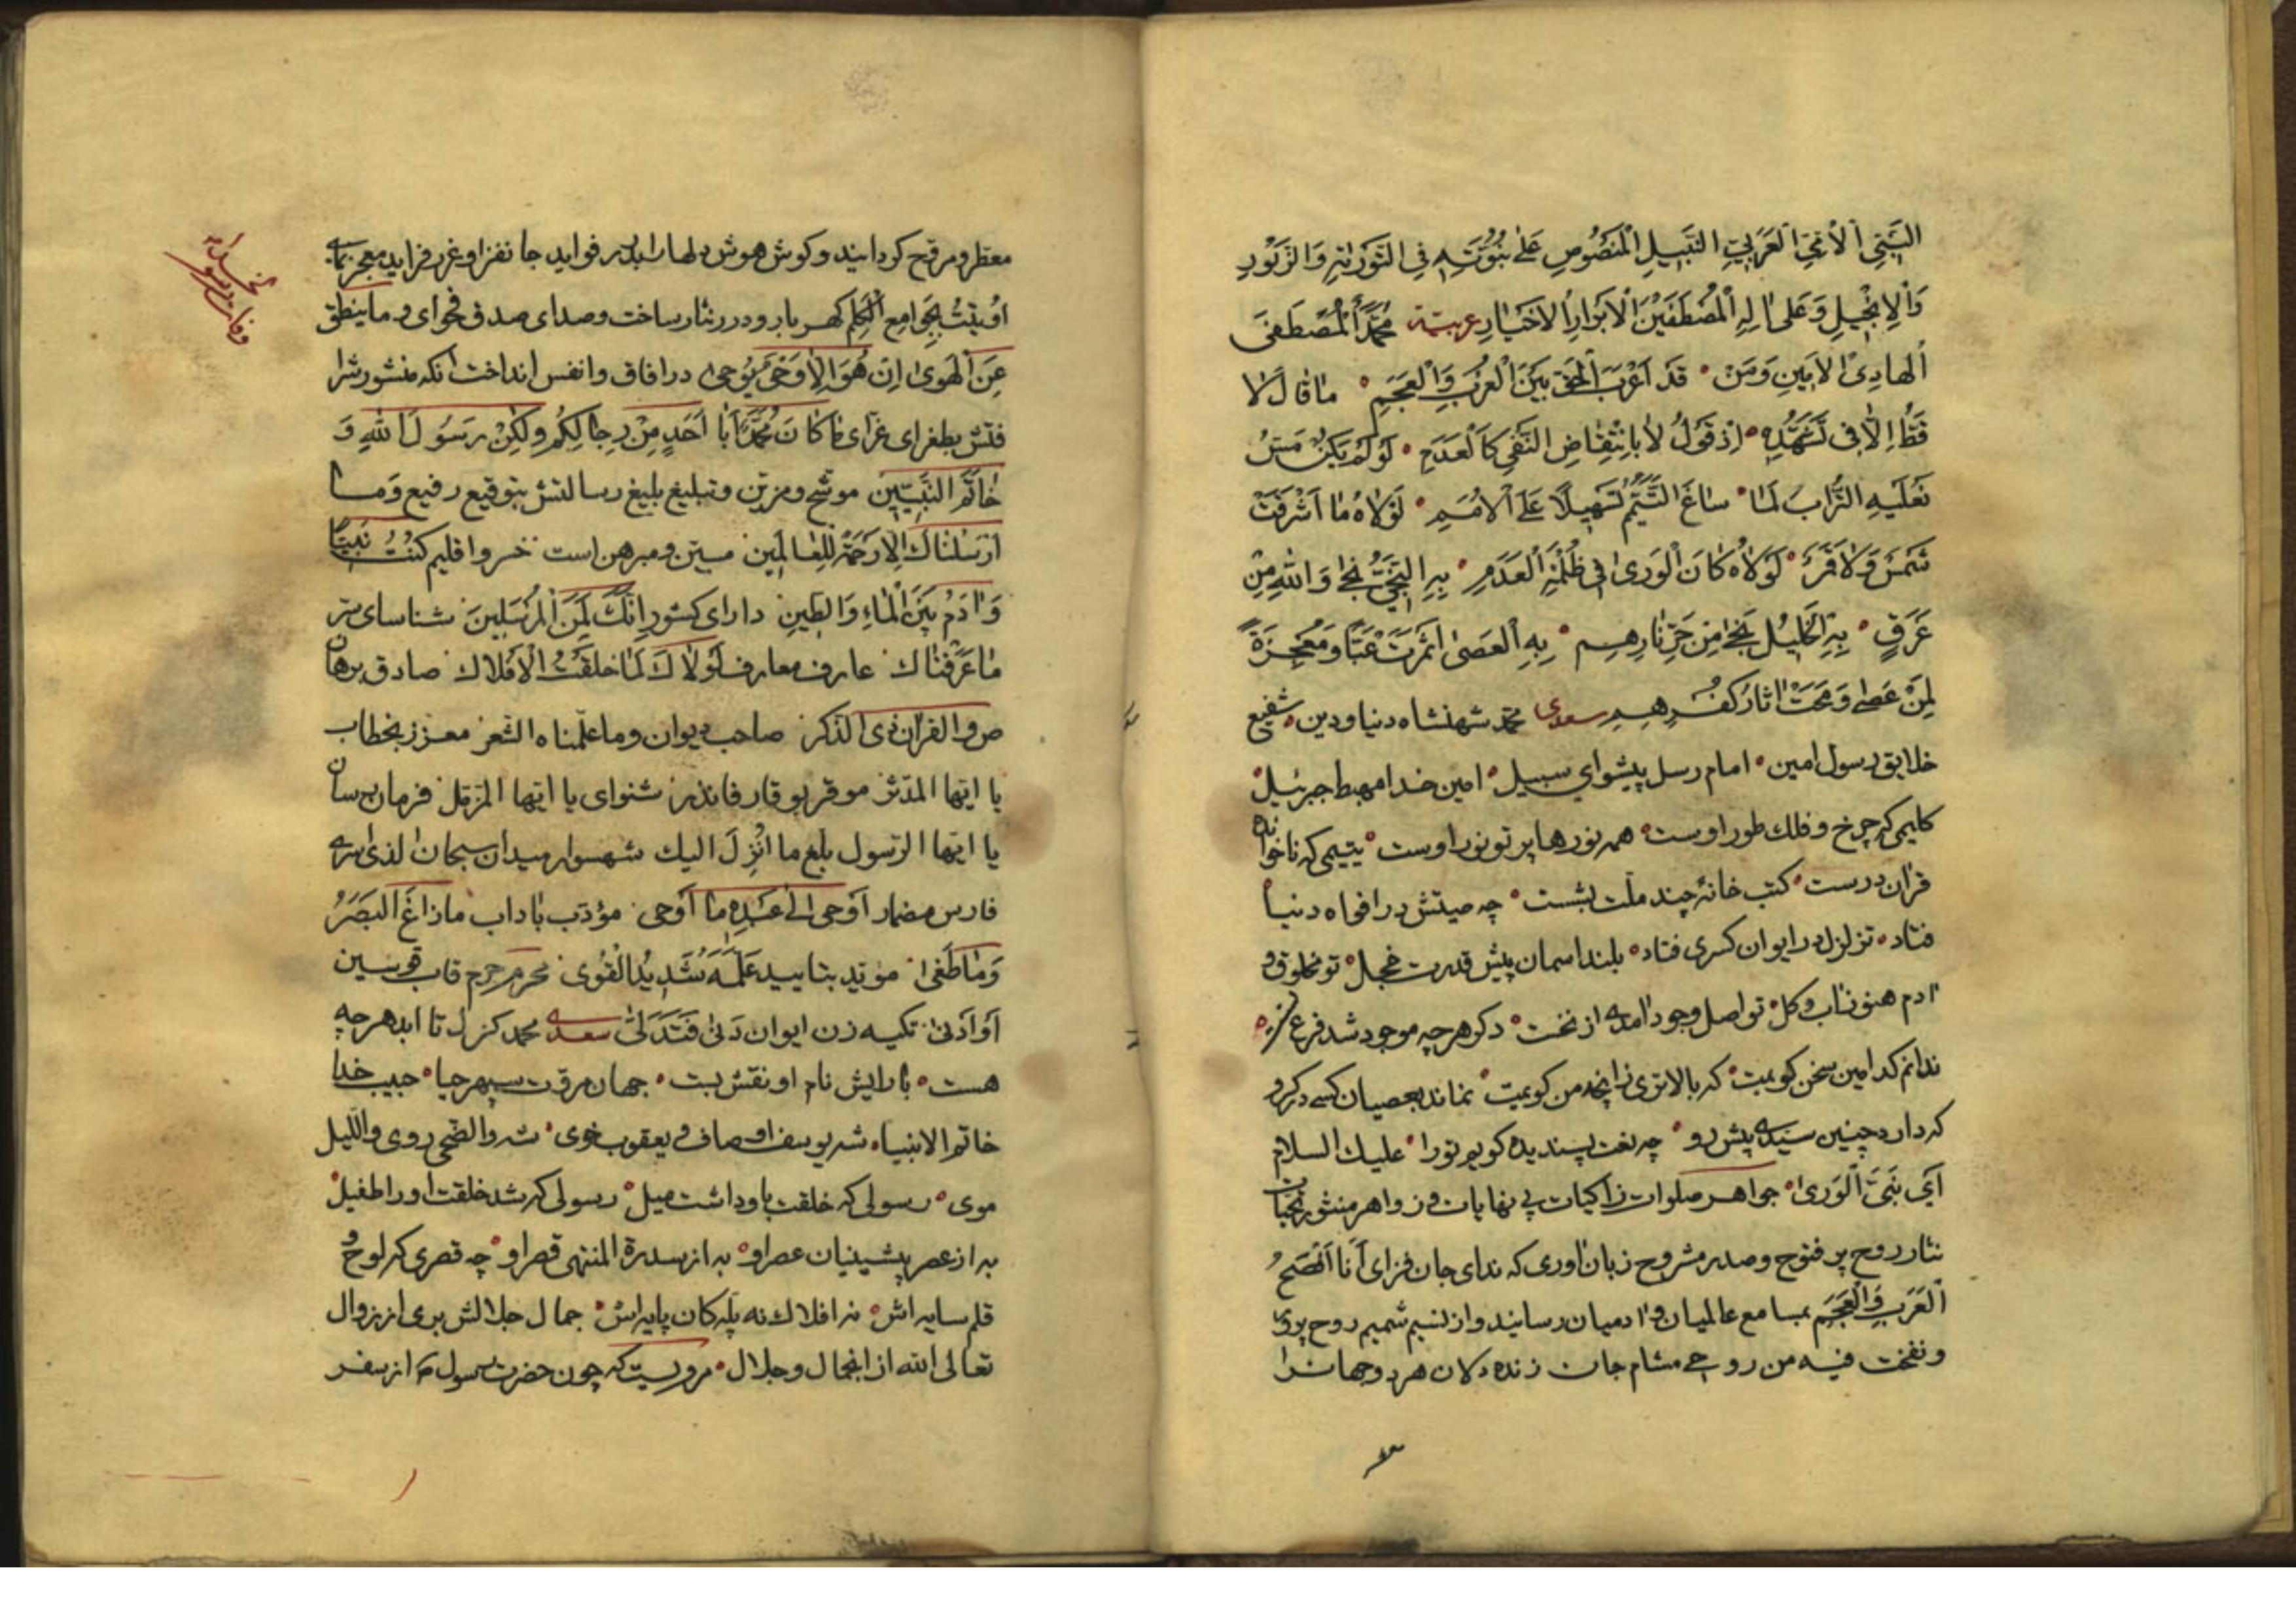 النَّبِيِّ الْأُمِّيِّ الْعَرَبِيِّ النَّبِيلِ الْمَنْصُوصِ عَلَى نُبُوَّتِهِ فِي التَّوْرٰيةِ وَالزَّبُورِ
وَالْإِنْجِيلِ وَعَلَى اٰلِهِ الْمُصْطَفَيْنَ الْأَبْرَارِ الْأَخْيَارِ عربیة مُحَمَّدُ الْمُصْطَفَى
الْهَادِي الْاَمِينِ وَمَنْ • قَدْ اَعْرَبَ الْحَقَّ بَيْنَ الْعُرْبِ وَالْعَجَمِ • مَا قَالَ لَا
قَطُّ اِلَّا فِي تَشَهُّدِهِ • اِذْ قَوْلُ لَا بِانْتِقَاضِ النَّفْيِ كَالْعَدَمِ • لَوْ لَمْ يَكُنْ مَسَّ
نَعْلَيْهِ التُّرَابَ لَمَا • سَاغَ التَّيَمُّمُ تَسْهِيلًا عَلَى الْاُمَمِ • لَوْلَاهُ مَا اَشْرَقَتْ
شَمْسٌ وَلَا قَمَرٌ • لَوْلَاهُ كَانَ الْوَرٰى فِي ظُلْمَةِ الْعَدَمِ • بِهِ النَّجِيُّ نَجٰى وَاللّٰهِ مِنْ
غَرَقٍ • بِهِ الْخَلِيلُ نَجٰى مِنْ حَرِّ نَارِهِمِ • بِهِ الْعَصٰى اَثْمَرَتْ عِنَبًا وَمُعْجِزَةً
لِمَنْ عَصٰى وَمَحَتْ اٰثَارَ كُفْرِهِمِ سعدی محمّد شهنشاه دنیا و دین • شفیع
خلایق رسول امین • امام رسل پیشوای سبیل • امین خدا مهبط جبرئیل •
کلیمی که چرخ و فلک طور اوست • همه نورها پرتو نور اوست • یتیمی که ناخوانده
قرآن درست • کتب خانۀ چند ملّت بشست • چه صیتش در افواه دنیا
فتاد • تزلزل در ایوان کسری فتاد • بلند اسمان پیش قدرت خجل • تو مخلوق و
آدم هنوز آب و گل • تو اصل وجود آمدی از نخست • دکر هرچه موجود شد فرع تست •
ندانم کدامین سخن کویمت • که بالاتری زآنچه من کویمت • نماند بعصیان کسی در کرو
که دارد چنین سیّدی پیش رو • چه نعت پسندیده کویم تورا • علیک السلام
اَی نَبِیَّ الْوَرٰی • جواهر صلوات زاکیات بی نهایات و زواهر منثور تحیّات
نثار روح پر فتوح وصدر مشروح زبان آوری که ندای جان فزای اَنَا اَفْصَحُ
الْعَرَبِ وَالْعَجَمِ بمسامع عالمیان و آدمیان رسانید واز نسیم شمیم روح پرور
ونفخت فیه من روحی مشام جان زنده دلان هر دو جهانرا
معطر ومروّح کردانید وکوش هوش دلها را بدرر فواید جانفزا و غرر فراید معجزنمای
اُوتِیتُ بِجَوَامِعِ الْکَلِمِ کهربار ودرر نثار ساخت وصدای صدق فحوای وما ینطق
عَنِ الْهَوٰی اِنْ هُوَ اِلَّا وَحْیٌ یُوحٰی در آفاق وانفس انداخت آنکه منشور شرا
فتش بطغرای غرّای مَا کَانَ مُحَمَّدٌ اَبَا اَحَدٍ مِنْ رِجَالِکُمْ وَلٰکِنْ رَسُولَ اللهِ وَ
خَاتَمَ النَّبِیّینَ موشّح ومزیّن وتبلیغ بلیغ رسالتش بتوقیع رفیع وَمَا
اَرْسَلْنَاكَ اِلَّا رَحْمَةً لِلْعَالَمِینَ مبیّن ومبرهن است خسرو اقلیم کُنْتُ نَبِیًّا
وَاٰدَمُ بَیْنَ الْمَاءِ وَالطِّینِ دارای کشور اِنَّكَ لَمِنَ الْمُرْسَلِینَ شناسای سرّ
مَا عَرَفْنَاكَ عارف معارف لَوْلَاكَ لَمَا خَلَقْتُ الْاَفْلَاكَ صادق برهان
ص والقرآن ذی الذکر صاحب دیوان وما علّمناه الشعر معزز بخطاب
یا ایّها المدّثر موقر بوقار فانذر شنوای یا ایّها المزمّل فرمان رسان
یا ایّها الرّسول بلغ ما اُنْزِلَ الیك شهسوار میدان سبحان الذی اسری
فارس مضمار اَوْحٰی اِلٰی عَبْدِهِ مَا اَوْحٰی مؤدّب باداب مَازَاغَ الْبَصَرُ
وَمَا طَغٰی مؤیّد بتایید عَلَّمَهُ شَدِیدُ الْقُوٰی محرم حرم قاب قوسین
اَوْ اَدْنٰی تکیه زن ایوان دَنٰی فَتَدَلّٰی سعدی محمد کز ازل تا ابد هرچه
هست • بآرایش نام او نقش بست • جهان مروّت سپهر حیا • حبیب خدا
خاتم الانبیا • شه یوسف اوصاف و یعقوب خوی • شه والضّحی روی و اللّیل
موی • رسولی که خلقت باو داشت میل • رسولی که شد خلقت اورا طفیل •
به از عصر پیشینیان عصر او • به از سدرة المنتهی قصر او • چه قصری که لوح و
قلم سایه اش • نه افلاك نه پلّه کان پایه اش • جمال جلالش بری از زوال
تعالی الله از آنجمال و جلال • مرویست که چون حضرت رسول از سفر